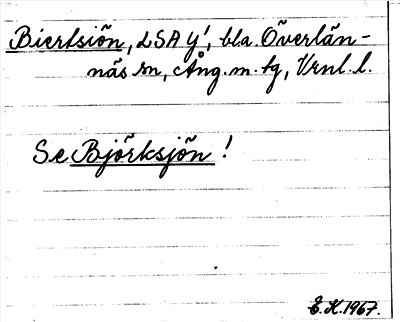 Bierksiön, LSA Y', bla. Överlän-
näs sn, Ång. m. fg, Vrnl. l.
Se Björksjön !
E.K. 1967.